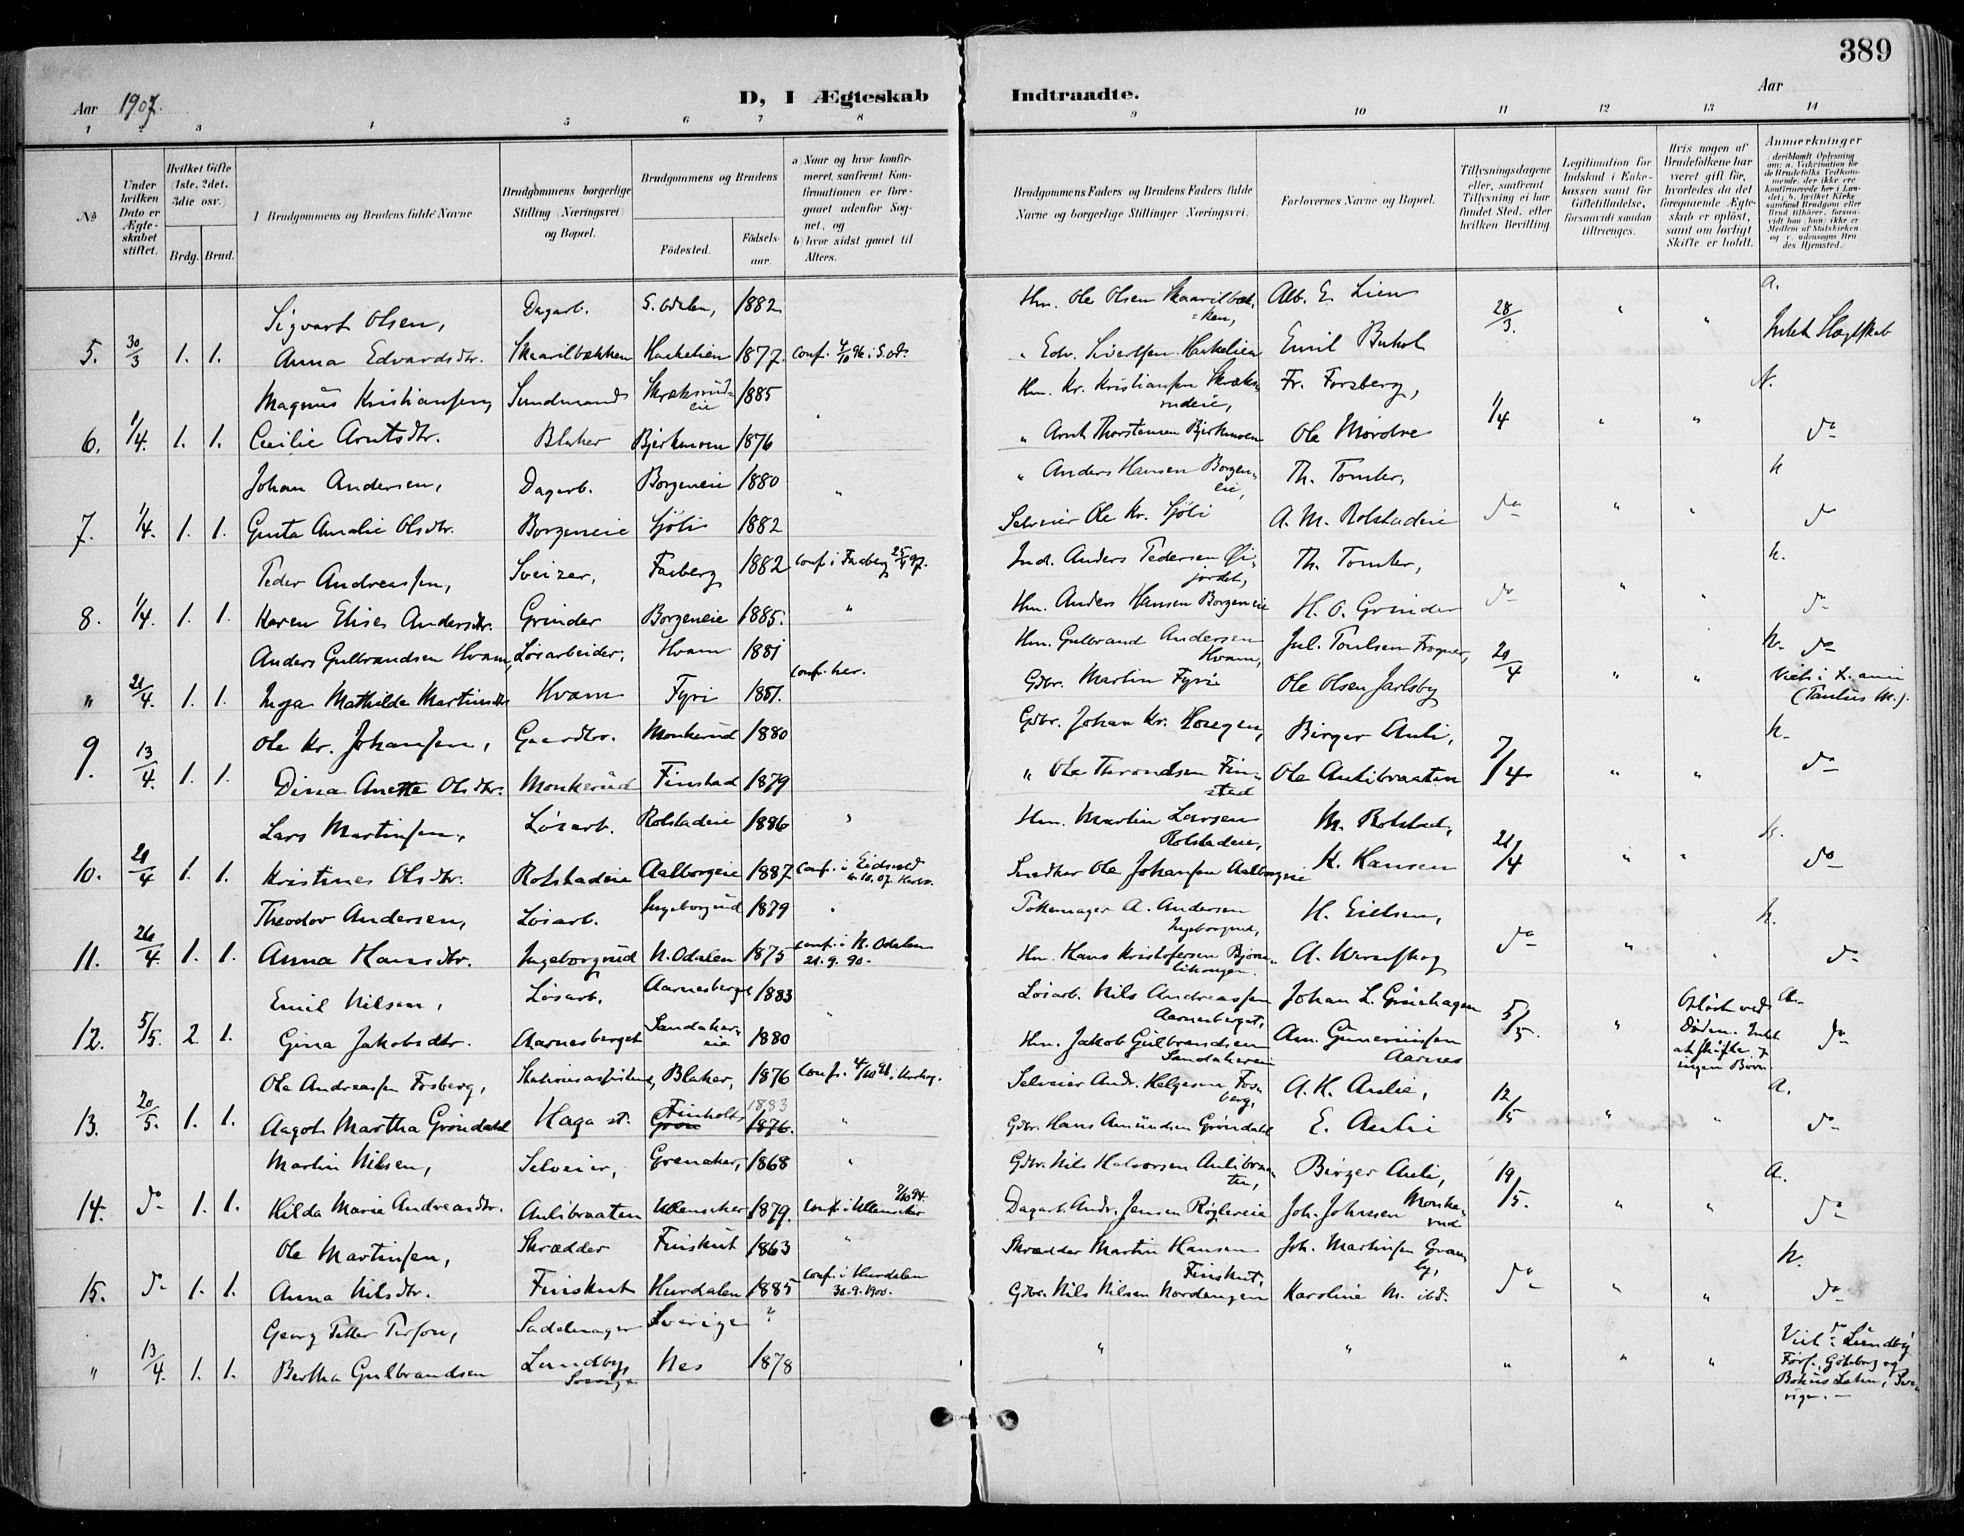 389
Aar 1907.
D, I Ægteskab Indtraadte.
Aar
1 2 3 4 5 6 7 8 9 10 11 12 13 14
No
Under hvilken Dato er Ægteskabet stiftet.
Hvilket Gifte (1ste, 2det, 3die osv.)
Brdg. Brud.
Brudgommens og Brudens fulde Navne
Brudgommens borgerlige Stilling (Næringsvei) og Bopæl.
Brudgommens og Brudens
Fødested.
Fødselsaar.
a) Naar og hvor konfirmeret, saafremt Konfirmationen er foregaaet udenfor Sognet, og
b) hvor sidst gaaet til Alters.
Brudgommens Faders og Brudens Faders fulde Navne og borgerlige Stillinger (Næringsvei)
Forlovernes Navne og Bopæl.
Tillysningsdagene eller, saafremt Tillysning ei har fundet Sted, efter hvilken Bevilling.
Legitimation for Indskud i Enkekassen samt for Giftetilladelse, forsaavidt saadan tiltrænges.
Hvis nogen af Brudefolkene har været gift før, hvorledes da det foregaaende Ægteskab er opløst, samt om lovligt Skifte er holdt.
Anmærkninger
Sigvart Olsen, Dagarb. S. Odalen, 1882 Hm. Ole Olsen Skaarilbækken, Alb. E. Lien 28/3. a.
5. 30/3 1. 1. Anna Edvardsdtr. Skaarilbækken Haskelien 1877. conf. 4/10 96 i S. Od. " Edv. Sivertsen Haskelien Emil Buhol " " Intet Slægtskab
Magnus Kristiansen, Sundmand Skræksrudeie 1885 " Hm. Kr. Kristiansen Skræksrudeie, Fr. Forsberg, 1/4 N.
6. 1/4. 1. 1. Cecilie Arntsdtr. Blaker Bjerkmoen 1876 " Arnt Thorstensen Bjerkmoen Ole Mordre " " do
Johan Andersen, Dagarb. Borgeneie 1880 " " Anders Hansen Borgeneie, Th. Tomter, h
7. 1/4. 1. 1. Gusta Amalie Olsdtr. Borgeneie Sjøli 1882 Selveier Ole Kr. Sjøli A. M. Rolstadeie do " " do
Peder Andreassen, Sveizer, Faaberg 1882 conf. i Faaberg 25/4 97. Ind. Anders Pedersen Øijordet, Th. Tomter, h.
8. 1/4. 1. 1. Karen Elise Andersdtr. Grinder Borgeneie 1885. " Hm. Anders Hansen Borgeneie H. O. Grinder do " " do
Anders Gulbrandsen Hvam, Løsarbeider, Hvam 1881 Hm. Gulbrand Andersen Hvam, Jul. Poulsen Frogner, 21/4 h. do
" 21/4. 1. 1. Inga Mathilde Martinsdtr Hvam Fyri 1881. conf. her. Gdbr. Martin Fyrie Ole Olsen Jarlsby " " Viet i
Ole Kr. Johansen, Gaardbr. Monkerud 1880 Gdbr. Johan Kr. Haugen, Birger Auli, 7/4 h.
9. 13/4. 1. 1. Dina Anette Olsdtr. Monkerud Finstad 1879 " Ole Throndsen Finstad Ole Aulibraaten " " do
Lars Martinsen, Løsarb. Rolstadeie 1886 " Hm. Martin Larsen Rolstadeie, M. Rolstad, 21/4 h.
10. 21/4 1. 1. Kristine Olsdtr. Rolstadeie Aalborgeie 1887. conf. i Eidsvold Snedker Ole Johansen Aalborgeie K. Hansen " " do
Theodor Andersen, Løsarb. Ingeborgrud 1879 " A. Andersen Ingeborgrud, H. Eielsen, h.
11. 26/4. 1. 1. Anna Hansdtr. Ingeborgrud N. Odalen 1875 conf. i N. Odalen 21. 9. 90. Hm. Hans Kristofersen do " " do
Emil Nilsen, Løsarb. Aarnesberget 1883 " Løsarb. Nils Andreassen Aarnesberget, Johan L. Grønhagen 5/5. Opløst ved Døden. Intet at skifte og ingen Børn a.
12. 5/5. 2. 1. Gina Jakobsdtr. Aarnesberget Sandakereie 1880 Hm. Jakob Gulbrandsen Sandakereie Am. Gunerussen Aarnes " do
Ole Andreassen Fosberg, Stationsassistent, Blaker, 1876 conf. 4/10 Selveier Andr. Helgesen Fosberg, A. H. Aulie, 12/5 a.
13. 20/5. 1. 1. Aagot Martha Grøndahl Haga st. Finholt Grøn 1883 1876. " Gdbr. Hans Amundsen Grøndahl E. Aulie " " do
Martin Nilsen, Selveier, Grenaker, 1868 " Gdbr. Nils Halvorsen Aulibraaten, Birger Auli, 19/5. a.
14. do 1. 1. Hilda Marie Andreasdtr. Aulibraaten Ullensaker 1879. conf. i Ullensaker 7/10 94. Dagarb. Andr. Jensen Røglereie Joh. Johnsen Monkerud " " do
Ole Martinsen, Skrædder Finskut 1863 " Skrædder Martin Hansen Finskut, Joh. Martinsen h.
15. do 1. 1. Anna Nilsdtr. Finskut Hurdalen 1885 conf. i Hurdalen 30. 9. 1900. Gdbr. Nils Nilsen Nordengen Karoline M. ibd. do " " do
Georg Sadelmager Sverige ?
" 13/4. 1. 1. Bertha Gulbrandsen Lundby, Sverige Nes 1878 " " " " " Viet i Lundby Førs. Göteborg og Bohus Lehn, Sverige.